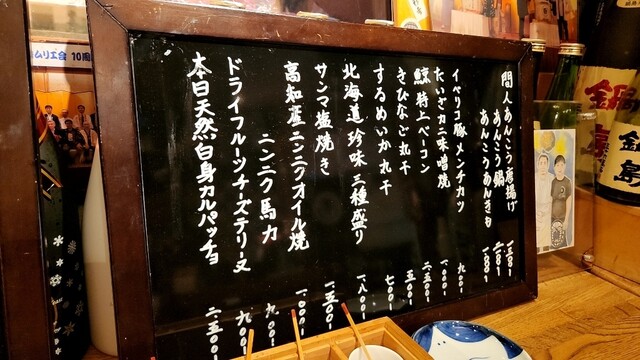 間人あんこう唐揚げ 一三〇〇-
あんこう鍋
あんこうあんきも
イベリコ豚メンチカツ 九〇〇-
たいざカニ味噌焼 一〇〇〇-
鯨特上ベーコン 二五〇〇-
きびなご丸干 五〇〇-
するめいか丸干 七〇〇-
北海道珍味三種盛り 一八〇〇-
サンマ塩焼き 一五〇〇-
高知産ニンニクオイル焼 一〇〇〇-
ニンニク馬力 九〇〇-
ドライフルーツチーズテリーヌ 九〇〇-
本日天然白身カルパッチョ 二五〇〇-
鍋島